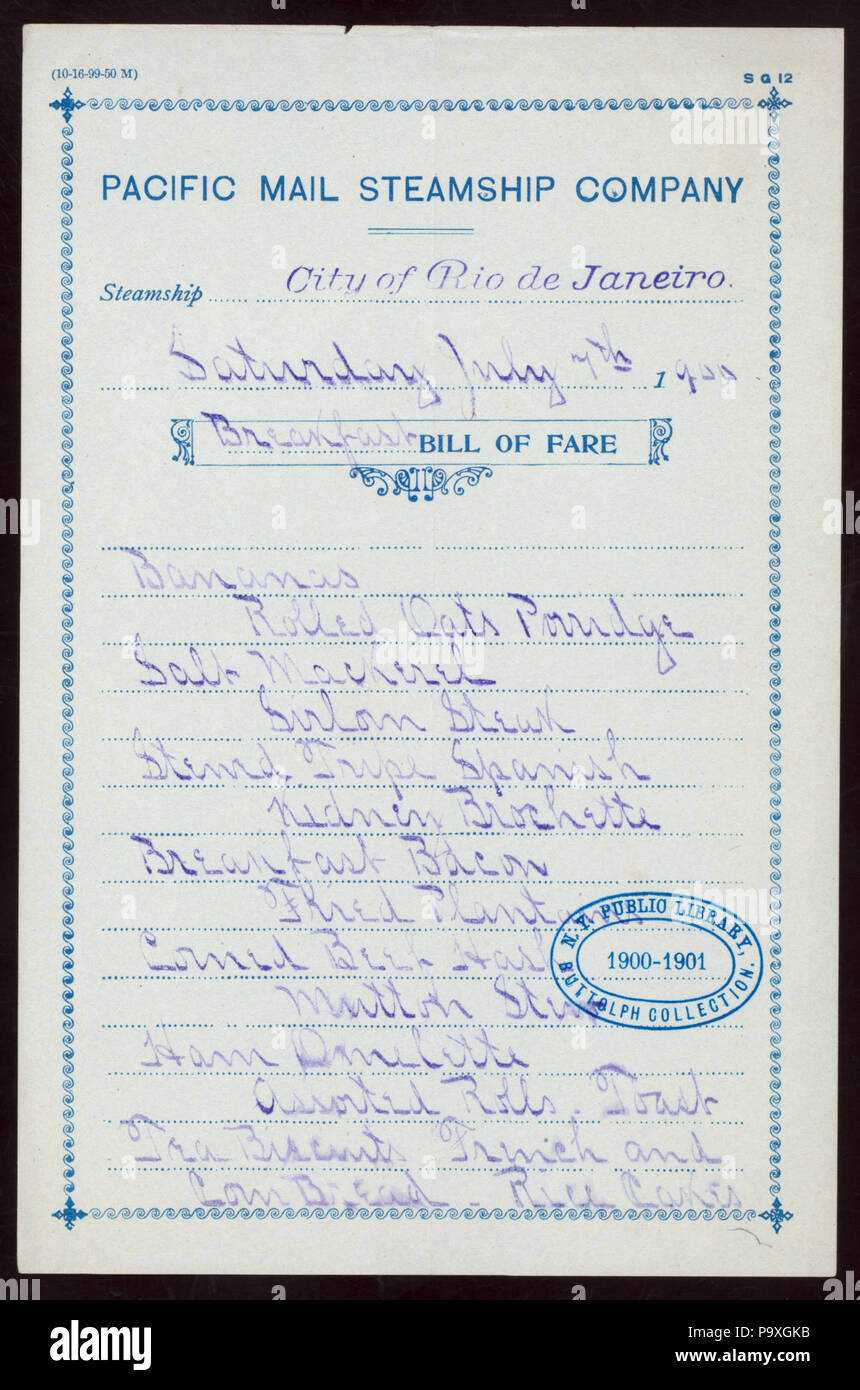 (10-16-99-50 M)
S G 12
PACIFIC MAIL STEAMSHIP COMPANY
Steamship City of Rio de Janeiro.
Saturday July 7th 1900
Breakfast BILL OF FARE
Bananas
Rolled Oats Porridge
Salt Mackerel
Sirloin Steak
Stewd Tripe Spanish
Kidney Brochette
Breakfast Bacon
Fried Plantains
Corned Beef Hash
Mutton Stew
Ham Omelette
Assorted Rolls. Toast
Tea Biscuits French and
Corn Bread - Rice Cakes
N.Y. PUBLIC LIBRARY,
1900-1901
BUTTOLPH COLLECTION.
alamy
Image ID: P9XGKB
www.alamy.com